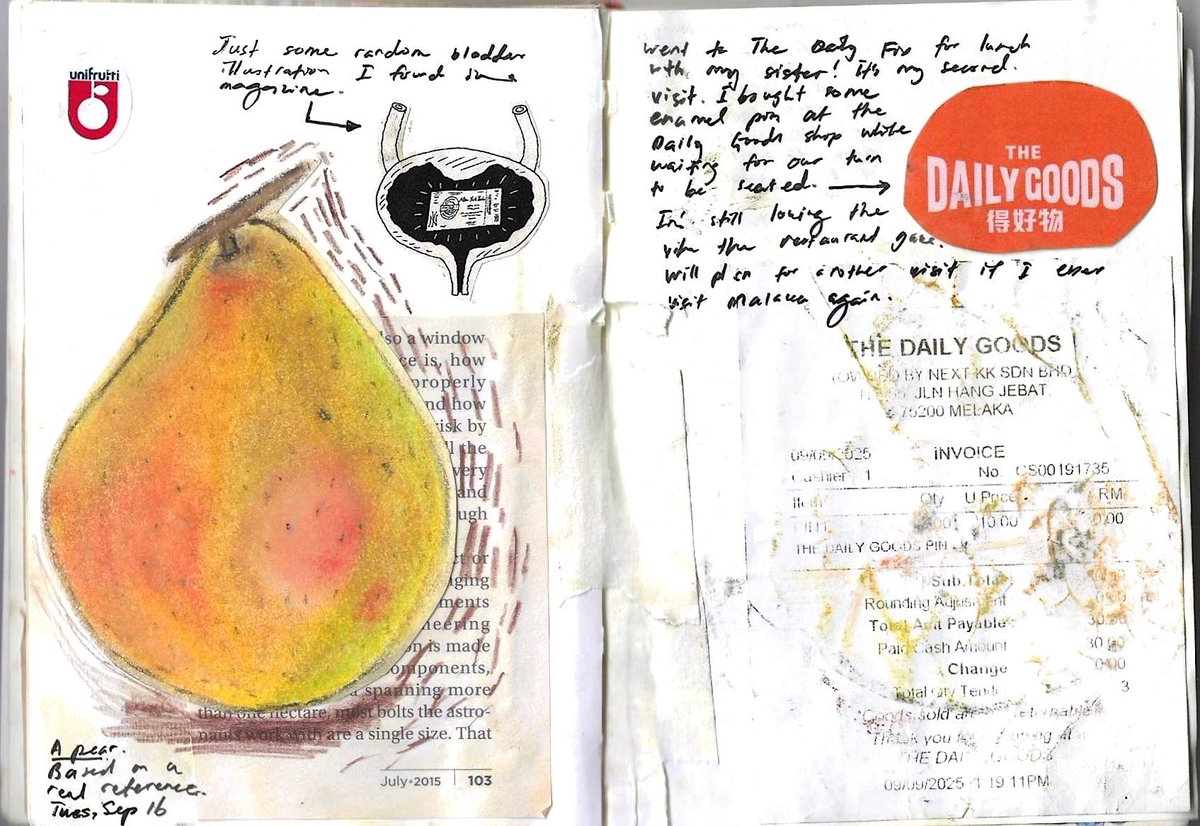 unifrutti
Just some random bladder
illustration I found in a
magazine.
so a window
ce is, how
properly
nd how
risk by
ll the
very
and
ugh
ct or
ging
ments
neering
on is made
omponents,
a spanning more
than one hectare, most bolts the astro-
nauts work with are a single size. That
July•2015 | 103
A pear.
Based on a
real reference.
Tues, Sep 16
went to The Daily Fix for lunch
with my sister! It's my second
visit. I bought some
enamel pin at the
Daily Goods shop while
waiting for our turn
to be seated.
I'm still loving the
vibe the restaurant gave.
Will plan for another visit if I ever
visit Malacca again.
THE
DAILY GOODS
得好物
THE DAILY GOODS
BY NEXT KK SDN BHD
JLN HANG JEBAT,
75200 MELAKA
INVOICE
09/09/2025
Cashier 1 No. CS00191735
Item Qty U Price RM
10.00
THE DAILY GOODS PIN
Sub Total
Rounding Adjustment
Total Amt Payable
Paid Cash Amount
Change 0.00
Total Qty 3
Goods sold
THE DAILY GOODS
09/09/2025 1 19 11PM